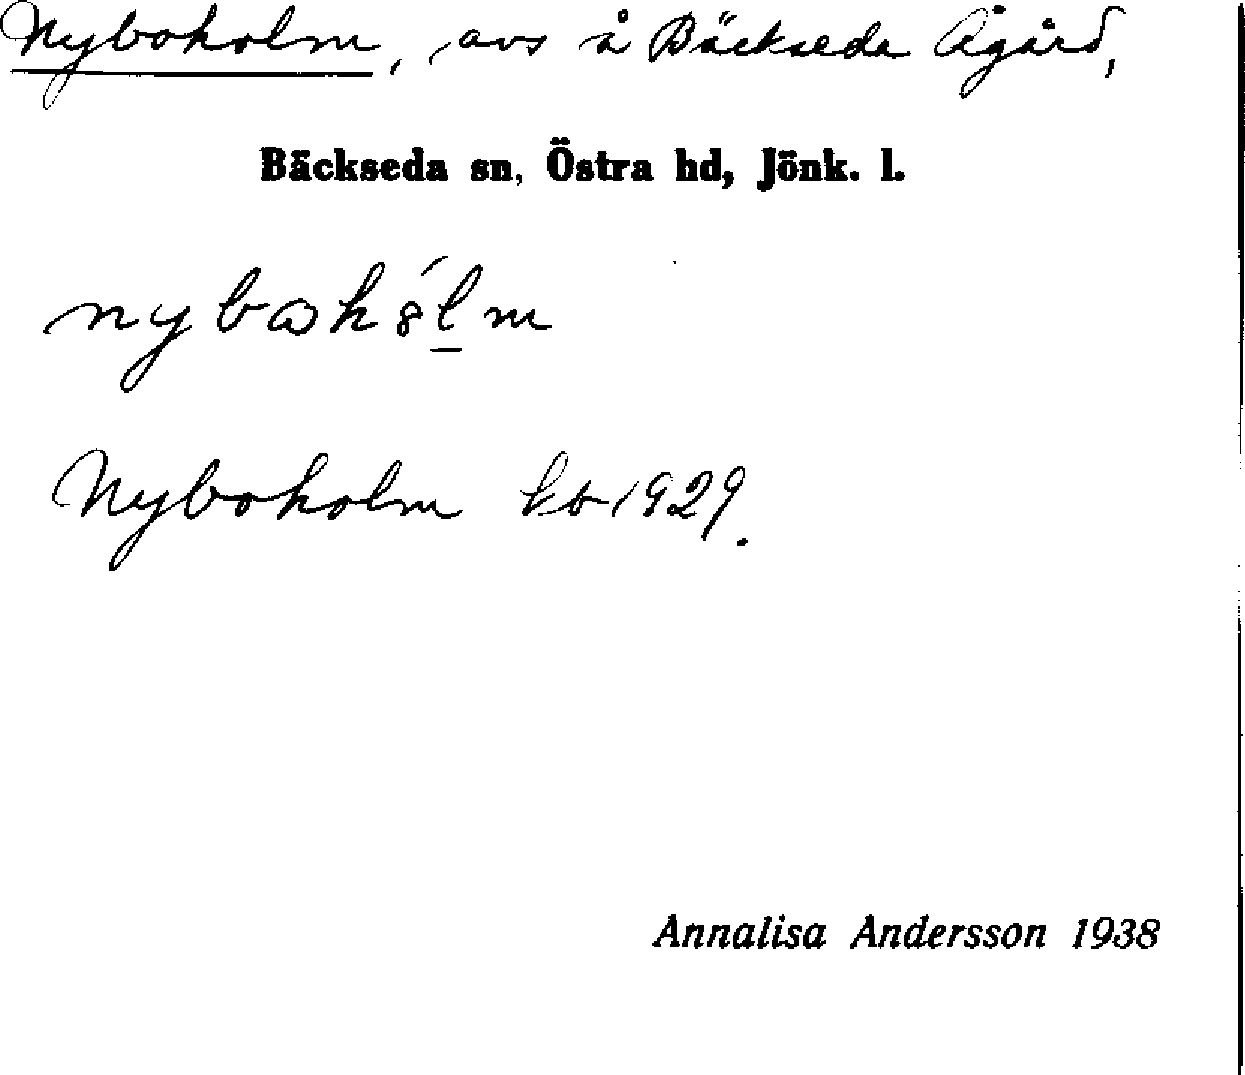 Nyboholm, avs å Bäckseda Ågård,
Bäckseda sn, Östra hd, Jönk. l.
Nyboholm kb 1929.
Annalisa Andersson 1938